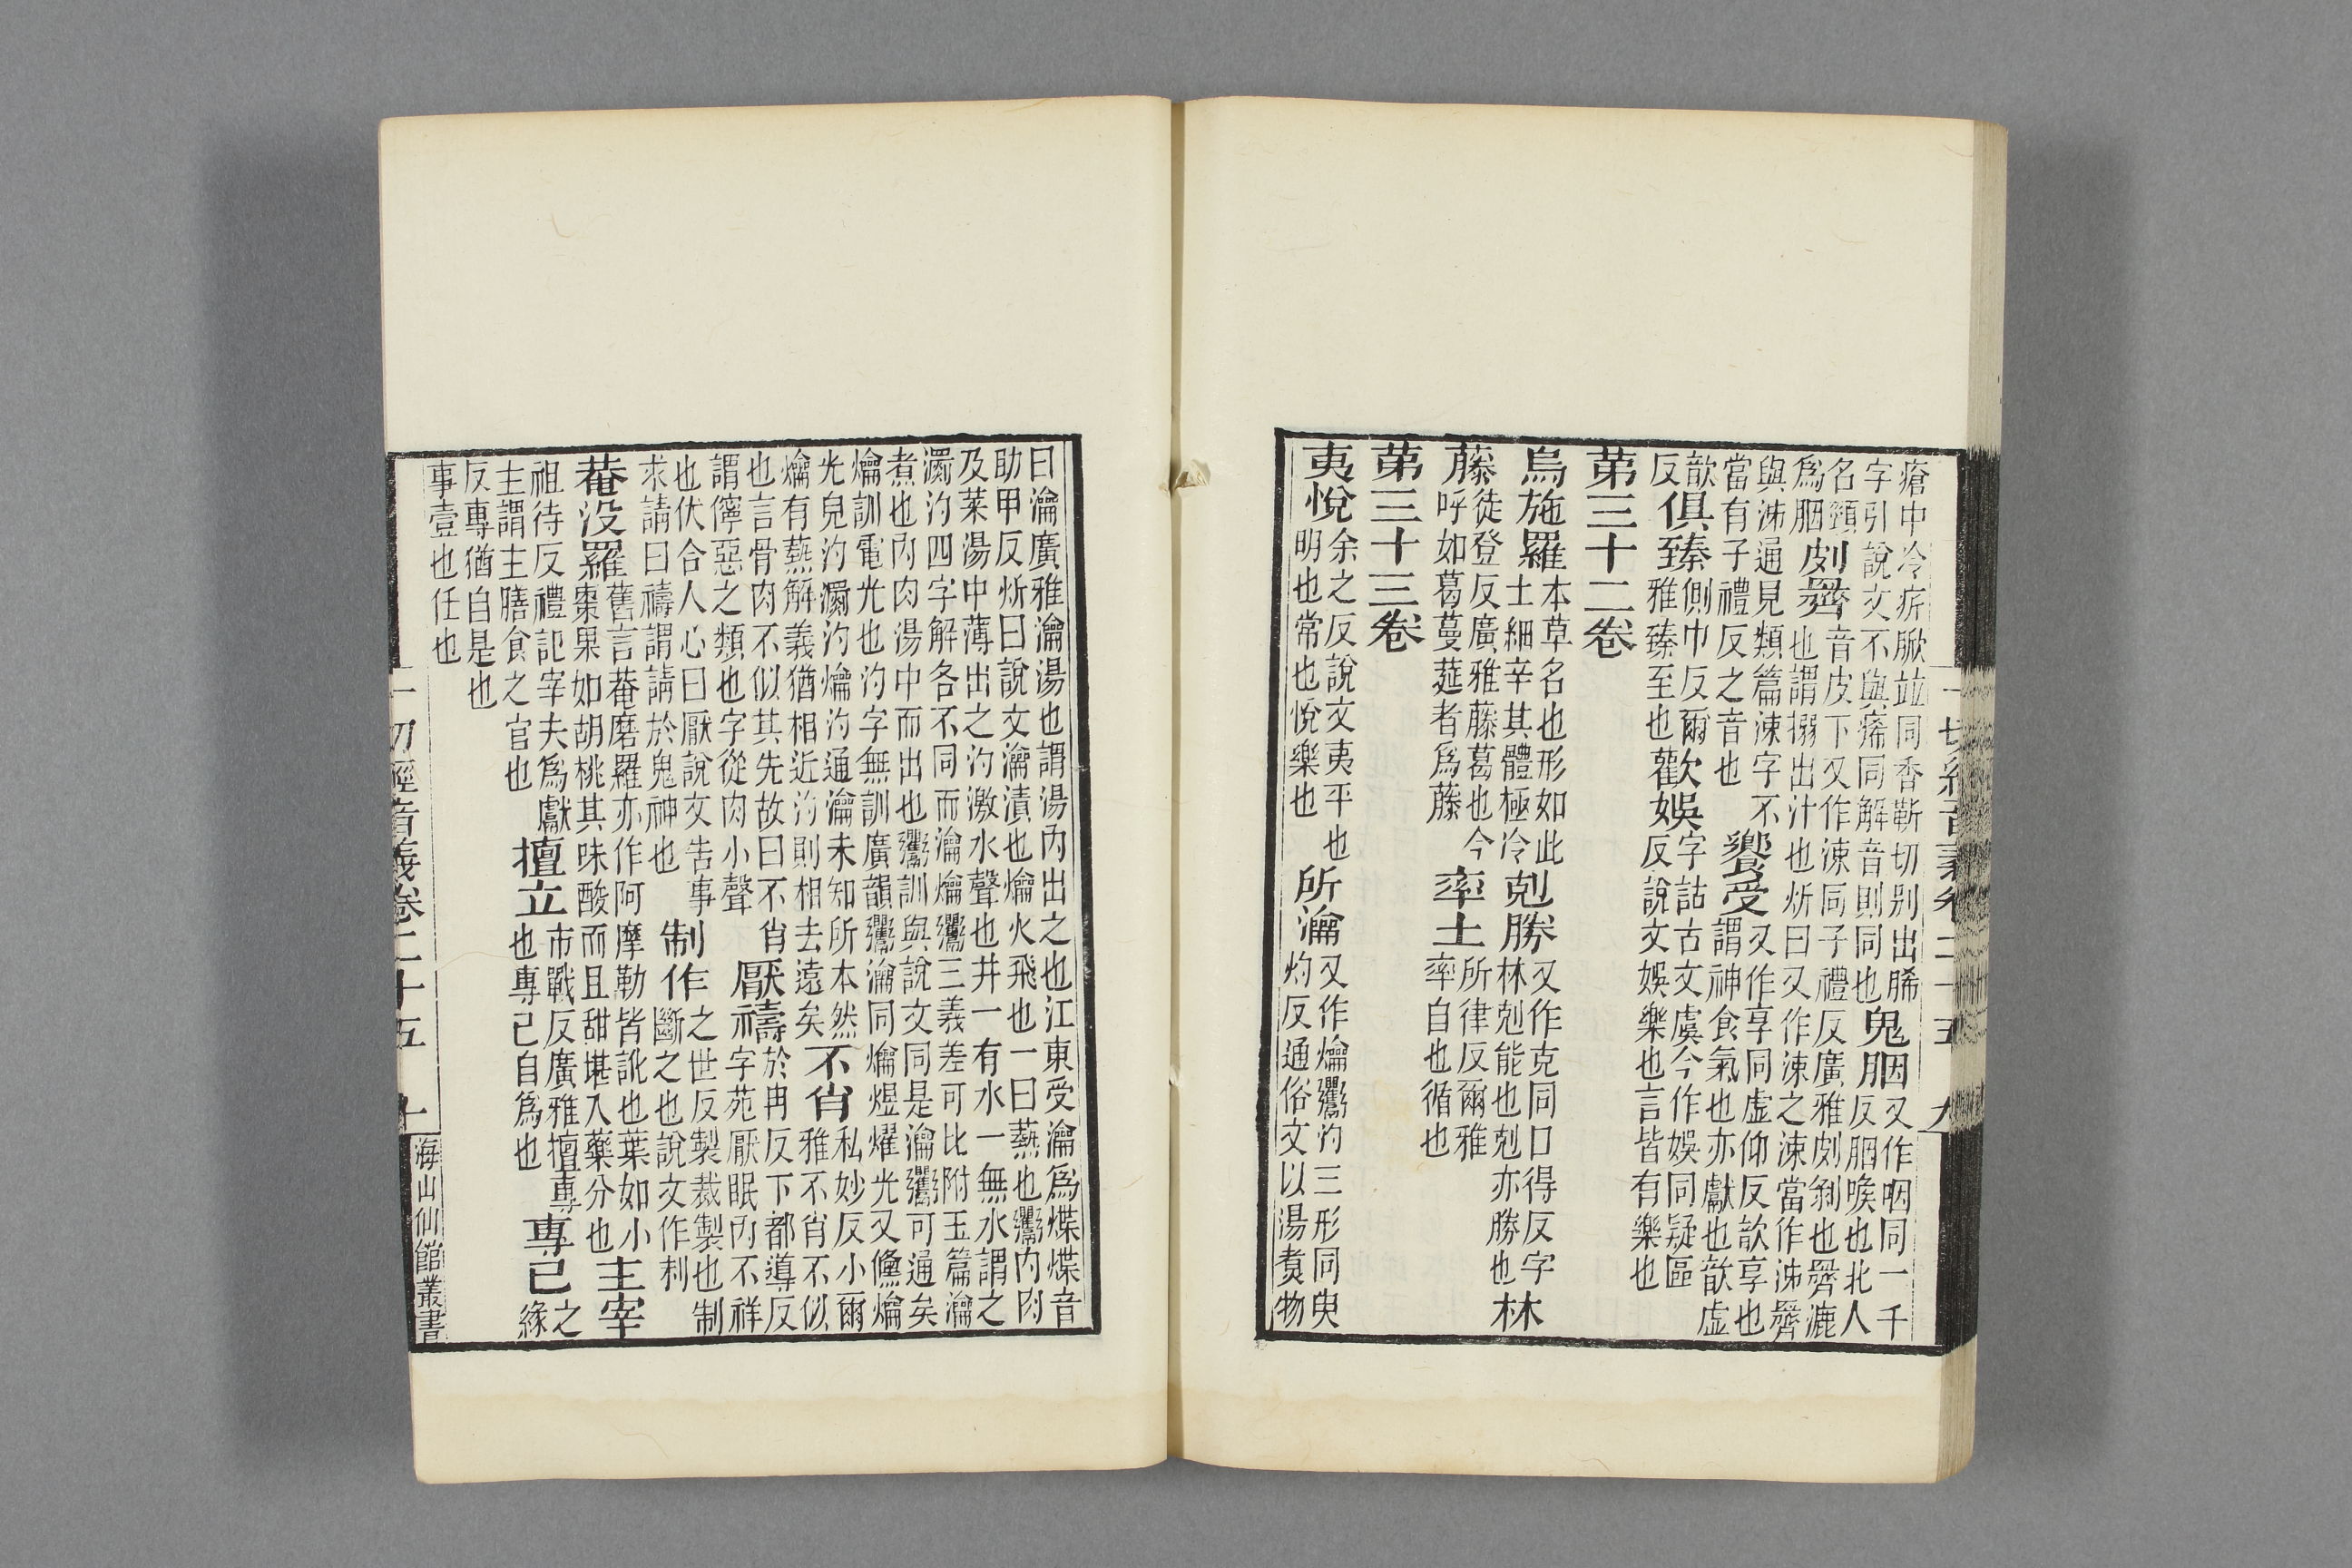 一切經音義卷二十五 九
瘡中冷疥瘚竝同香靳切别出腨
字引說文不與痛同解音則同也
皃胭
又作咽同一千
反胭喉也北人
名頸
為胭
剫劙
音皮下又作涷同子禮反廣雅剫剝也劙漉
也謂搦出汁也炘曰又作涷之涷當作泲劙
與泲通見類篇涷字不
當有子禮反之音也
饗受
又作享同虛仰反歆享也
謂神食氣也亦獻也歆虛
歆
反
俱臻
側巾反爾
雅臻至也
歡娛
字詁古文虞今作娛同疑區
反說文娛樂也言皆有樂也
第三十二卷
烏施羅
本草名也形如此
土細辛其體極冷
剋勝
又作克同口得反字
林剋能也剋亦勝也
林
藤
徒登反廣雅藤葛也今
呼如葛蔓莚者為藤
率土
所律反爾雅
率自也循也
第三十三卷
夷悅
余之反說文夷平也
明也常也悅樂也
所瀹
又作爚鬻汋三形同臾
灼反通俗文以湯煑物
曰瀹廣雅瀹湯也謂湯内出之也江東受瀹為煠煠音
助甲反炘曰說文瀹漬也爚火飛也一曰爇也鬻内肉
及菜湯中薄出之汋激水聲也井一有水一無水謂之
瀱汋四字解各不同而瀹爚鬻三義差可比附玉篇瀹
煮也内肉湯中而出也鬻訓與說文同是瀹鬻可通矣
爚訓電光也汋字無訓廣韻鬻瀹同爚煜燿光又儵爚
光皃汋瀱汋爚汋通瀹未知所本然
爚有爇解義猶相近汋則相去遠矣
不肖
私妙反小爾
雅不肖不似
也言骨肉不似其先故曰不肖
謂儜惡之類也字從肉小聲
厭禱
於冉反下都導反
字苑厭眠内不祥
也伏合人心曰厭說文告事
求請曰禱謂請於鬼神也
制作
之世反製裁製也制
斷之也說文作利
菴没羅
舊言菴磨羅亦作阿摩勒皆訛也葉如小
棗果如胡桃其味酸而且甜堪入藥分也
主宰
祖待反禮記宰夫為獻
主謂主膳食之官也
擅立
市戰反廣雅擅專
也專己自為也
專己
之
緣
反專猶自是也
事壹也任也
一切經音義卷二十五 十
海山仙館叢書